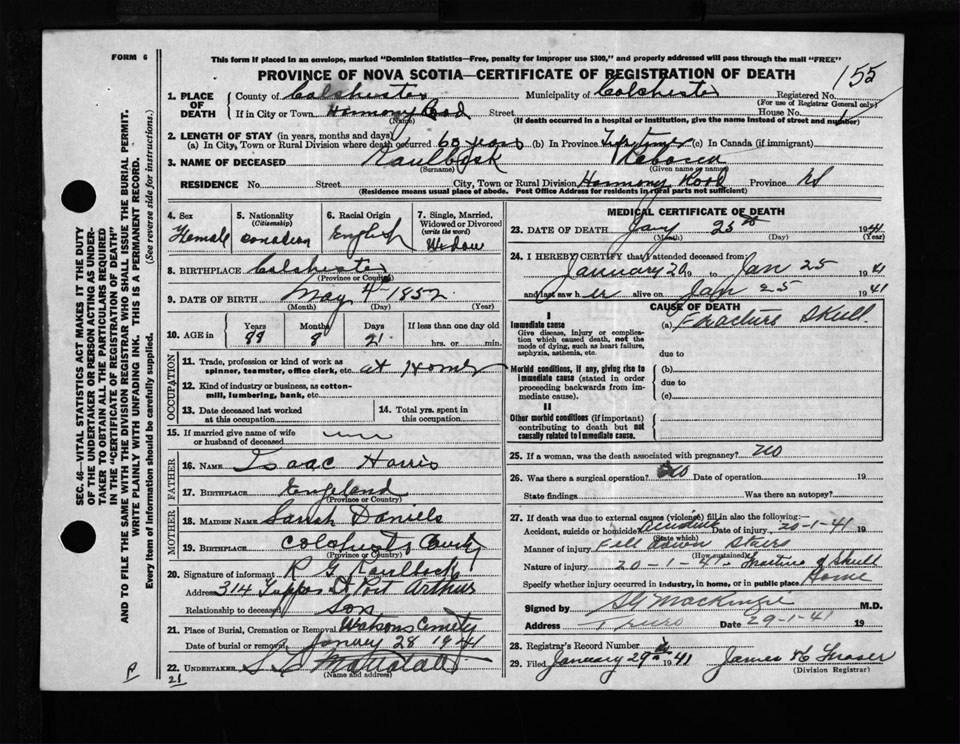 FORM 6
This form if placed in an envelope, marked "Dominion Statistics—Free, penalty for improper use $300," and properly addressed will pass through the mail "FREE"
PROVINCE OF NOVA SCOTIA—CERTIFICATE OF REGISTRATION OF DEATH
155
1. PLACE OF DEATH
County of Colchester Municipality of Colchester Registered No.
(For use of Registrar General only)
If in City or Town Harmony Road Street House No.
(Name) (If death occurred in a hospital or institution, give the name instead of street and number)
2. LENGTH OF STAY (in years, months and days)
(a) In City, Town or Rural Division where death occurred 60 years (b) In Province Lifetime (c) In Canada (if immigrant)
3. NAME OF DECEASED Kaulback Rebecca
(Surname) (Given name or names)
RESIDENCE No. Street City, Town or Rural Division Harmony Road Province NS
(Residence means usual place of abode. Post Office Address for residents in rural parts not sufficient)
4. Sex Female
5. Nationality (Citizenship) Canadian
6. Racial Origin English
7. Single, Married, Widowed or Divorced (write the word) Widow
8. BIRTHPLACE Colchester
(Province or Country)
9. DATE OF BIRTH May 4th 1852
(Month) (Day) (Year)
10. AGE in Years Months Days If less than one day old
88 8 21 hrs. or min.
OCCUPATION
11. Trade, profession or kind of work as spinner, teamster, office clerk, etc. at Home
12. Kind of industry or business, as cotton-mill, lumbering, bank, etc.
13. Date deceased last worked at this occupation
14. Total yrs. spent in this occupation
15. If married give name of wife or husband of deceased
FATHER
16. NAME Isaac Harris
17. BIRTHPLACE England
(Province or Country)
MOTHER
18. MAIDEN NAME Sarah Daniels
19. BIRTHPLACE Colchester County
(Province or Country)
20. Signature of informant R G Kaulback
Address 314 Tupper St Port Arthur
Relationship to deceased Son
21. Place of Burial, Cremation or Removal Watsons Cemetery
Date of burial or removal January 28 1941
22. UNDERTAKER
(Name and address)
21
MEDICAL CERTIFICATE OF DEATH
23. DATE OF DEATH Jany 25th 1941
(Month) (Day) (Year)
24. I HEREBY CERTIFY that I attended deceased from
January 20 to Jan 25 1941
and last saw her alive on Jan 25 1941
CAUSE OF DEATH
I
Immediate cause
Give disease, injury or complication which caused death, not the mode of dying, such as heart failure, asphyxia, asthenia, etc.
(a) Fracture Skull
due to
Morbid conditions, if any, giving rise to immediate cause (stated in order proceeding backwards from immediate cause).
(b)
due to
(c)
II
Other morbid conditions (if important) contributing to death but not causally related to immediate cause.
25. If a woman, was the death associated with pregnancy? no
26. Was there a surgical operation? no Date of operation 19
State findings Was there an autopsy?
27. If death was due to external causes (violence) fill in also the following:—
Accident, suicide or homicide Accident Date of injury 20-1-41
(State which)
Manner of injury Fell down Stairs
(How sustained)
Nature of injury 20-1-41. Fracture of Skull
Specify whether injury occurred in industry, in home, or in public place Home
Signed by MacKenzie M.D.
Address Truro Date 29-1-41 19
28. Registrar's Record Number
29. Filed January 29th 1941 James Fraser
(Division Registrar)
SEC. 46—VITAL STATISTICS ACT MAKES IT THE DUTY
OF THE UNDERTAKER OR PERSON ACTING AS UNDER-
TAKER TO OBTAIN ALL THE PARTICULARS REQUIRED
IN THE "CERTIFICATE OF REGISTRATION OF DEATH"
AND TO FILE THE SAME WITH THE DIVISION REGISTRAR WHO SHALL ISSUE THE BURIAL PERMIT.
WRITE PLAINLY WITH UNFADING INK. THIS IS A PERMANENT RECORD.
Every item of information should be carefully supplied. (See reverse side for instructions.)